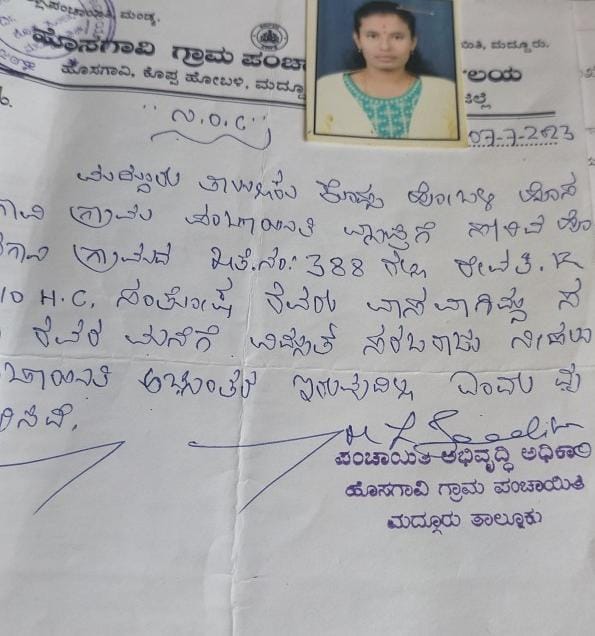 ಪಂಚಾಯಿತಿ, ಮಂಡ್ಯ.
ಹೊಸಗಾವಿ ಗ್ರಾಮ ಪಂಚಾ ಲಯ
ಯಿತಿ, ಮದ್ದೂರು.
ಹೊಸಗಾವಿ, ಕೊಪ್ಪ ಹೋಬಳಿ, ಮದ್ದೂ ಜಿಲ್ಲೆ
07-7-2023
"ಎನ.ಓ.ಸಿ"
ಮದ್ದೂರು ತಾಲ್ಲೂಕು ಕೊಪ್ಪ ಹೋಬಳಿ ಹೊಸ
ಗಾವಿ ಗ್ರಾಮ ಪಂಚಾಯಿತಿ ವ್ಯಾಪ್ತಿಗೆ ಸೇರಿದ ಹೊ
ಗಾವಿ ಗ್ರಾಮದ ಖಾತೆ.ನಂ: 388 ರಲ್ಲಿ ರೇವತಿ.K
H.C. ಸಂತೋಷ ರವರು ವಾಸವಾಗಿದ್ದು ಸ
ರವರ ಮನೆಗೆ ವಿದ್ಯುತ್ ಸರಬರಾಜು ನೀಡಲು
ಚಾಯಿತಿ ಅಭ್ಯಂತರ ಇರುವುದಿಲ್ಲ ಎಂದು
ಪಂಚಾಯಿತಿ ಅಭಿವೃದ್ಧಿ ಅಧಿಕಾರಿ
ಹೊಸಗಾವಿ ಗ್ರಾಮ ಪಂಚಾಯಿತಿ
ಮದ್ದೂರು ತಾಲ್ಲೂಕು